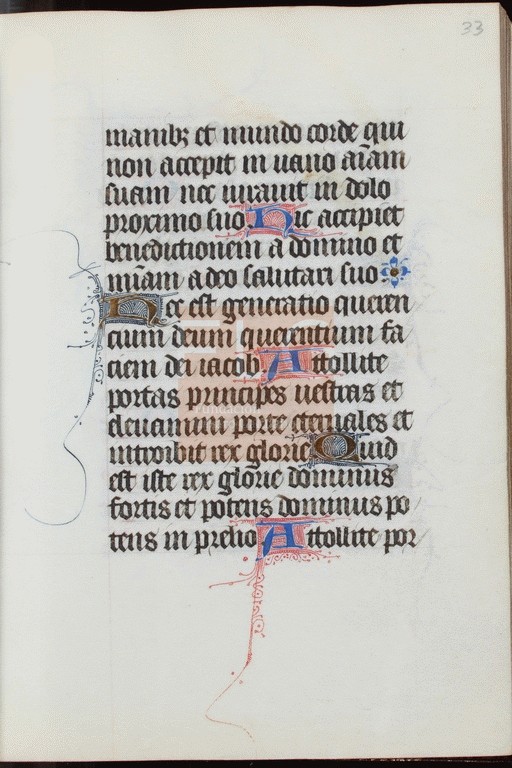 33
manibꝫ et mundo corde qui
non accepit in uano aīam
suam nec iurauit in dolo
proximo suo Hic accipiet
benedictionem a domino et
mīam a deo salutari suo
Hec est generatio queren
cium deum querentium fa
ciem dei iacob Attollite
portas principes uestras et
eleuamini porte eternales et
introibit rex glorie Quid
est iste rex glorie dominus
fortis et potens dominus po
tens in prelio Attollite por